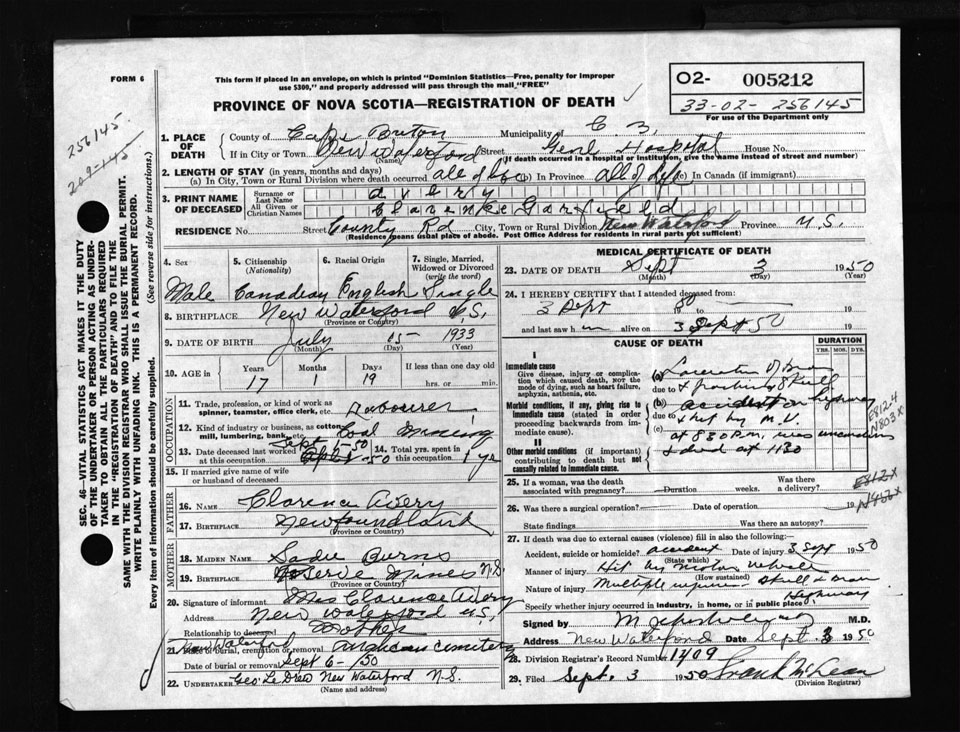 FORM 6
This form if placed in an envelope, on which is printed "Dominion Statistics—Free, penalty for improper
use $300," and properly addressed will pass through the mail "FREE"
PROVINCE OF NOVA SCOTIA—REGISTRATION OF DEATH
02- 005212
33-02- 256145
For use of the Department only
256145.
209-145
SEC. 46—VITAL STATISTICS ACT MAKES IT THE DUTY
OF THE UNDERTAKER OR PERSON ACTING AS UNDER-
TAKER TO OBTAIN ALL THE PARTICULARS REQUIRED
IN THE "REGISTRATION OF DEATH" AND TO FILE THE
SAME WITH THE DIVISION REGISTRAR WHO SHALL ISSUE THE BURIAL PERMIT.
WRITE PLAINLY WITH UNFADING INK. THIS IS A PERMANENT RECORD.
Every item of information should be carefully supplied. (See reverse side for instructions.)
1. PLACE OF DEATH
County of Cape Breton Municipality of C. B.
If in City or Town New Waterford Street Genl Hospital House No.
(Name) (If death occurred in a hospital or institution, give the name instead of street and number)
2. LENGTH OF STAY (in years, months and days)
(a) In City, Town or Rural Division where death occurred all of life (b) In Province all of life (c) In Canada (if immigrant)
3. PRINT NAME OF DECEASED
Surname or Last Name avery
All Given or Christian Names Clarence Garfield
RESIDENCE No. Street County Rd City, Town or Rural Division New Waterford Province N.S.
(Residence means usual place of abode. Post Office Address for residents in rural parts not sufficient)
4. Sex 5. Citizenship (Nationality) 6. Racial Origin 7. Single, Married, Widowed or Divorced (write the word)
Male Canadian English Single
8. BIRTHPLACE New Waterford N.S.
(Province or Country)
9. DATE OF BIRTH July 15 1933
(Month) (Day) (Year)
10. AGE in Years Months Days If less than one day old
17 1 19 hrs. or min.
OCCUPATION
11. Trade, profession, or kind of work as
spinner, teamster, office clerk, etc. Labourer
12. Kind of industry or business, as cotton
mill, lumbering, bank, etc. Coal Mining
13. Date deceased last worked at this occupation Sept 1-50
14. Total yrs. spent in this occupation 1 yr
15. If married give name of wife
or husband of deceased
FATHER
16. NAME Clarence Avery
17. BIRTHPLACE Newfoundland
(Province or Country)
MOTHER
18. MAIDEN NAME Sadie Burns
19. BIRTHPLACE Reserve Mines N.S.
(Province or Country)
20. Signature of informant Mrs Clarence Avery
Address New Waterford N.S.
Relationship to deceased Mother
New Waterford
21. Place of burial, cremation or removal Anglican Cemetery
Date of burial or removal Sept 6- 50
22. UNDERTAKER Geo. Le Drew New Waterford N.S.
(Name and address)
MEDICAL CERTIFICATE OF DEATH
23. DATE OF DEATH Sept 3 1950
(Month) (Day) (Year)
24. I HEREBY CERTIFY that I attended deceased from:
3 Sept 1950 19
and last saw him alive on 3 Sept 50 19
CAUSE OF DEATH
DURATION
YRS. MOS. DYS.
I
Immediate cause
Give disease, injury or complication which caused death, not the mode of dying, such as heart failure, asphyxia, asthenia, etc.
(a) Laceration of Brain
due to & fracture of Skull
Morbid conditions, if any, giving rise to immediate cause (stated in order proceeding backwards from immediate cause).
(b) accident on highway
due to & hit by M.V.
(c) at 830 P.M. was unconscious
II
Other morbid conditions (if important) contributing to death but not causally related to immediate cause.
& died at 1130
E812-4
N803X
25. If a woman, was the death
associated with pregnancy? Duration weeks. Was there a delivery?
E812X
26. Was there a surgical operation? Date of operation 19
State findings Was there an autopsy?
27. If death was due to external causes (violence) fill in also the following:—
Accident, suicide or homicide? accident Date of injury 3 Sept 1950
(State which)
Manner of injury Hit by motor vehicle
(How sustained)
Nature of injury Multiple injuries Skull & Brain
Specify whether injury occurred in industry, in home, or in public place. Highway
Signed by M.D.
Address New Waterford Date Sept. 3 1950
28. Division Registrar's Record Number 1409
29. Filed Sept. 3 1950 Frank McLean
(Division Registrar)